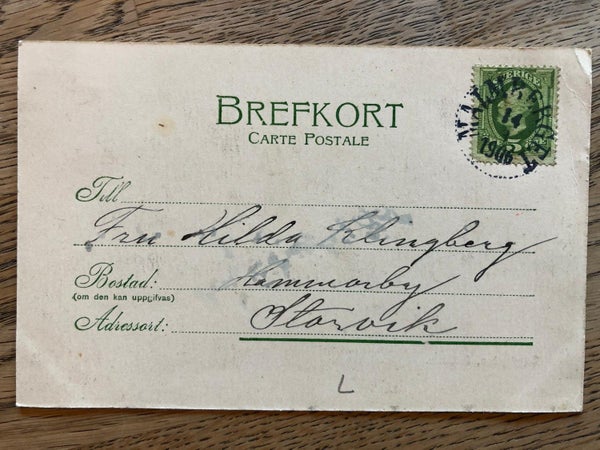 SVERIGE
MALMBERGET
14
1906
5
BREFKORT
CARTE POSTALE
Till
Fru Hilda Klingberg
Bostad: Hammarby
(om den kan uppgifvas)
Adressort: Storvik
L